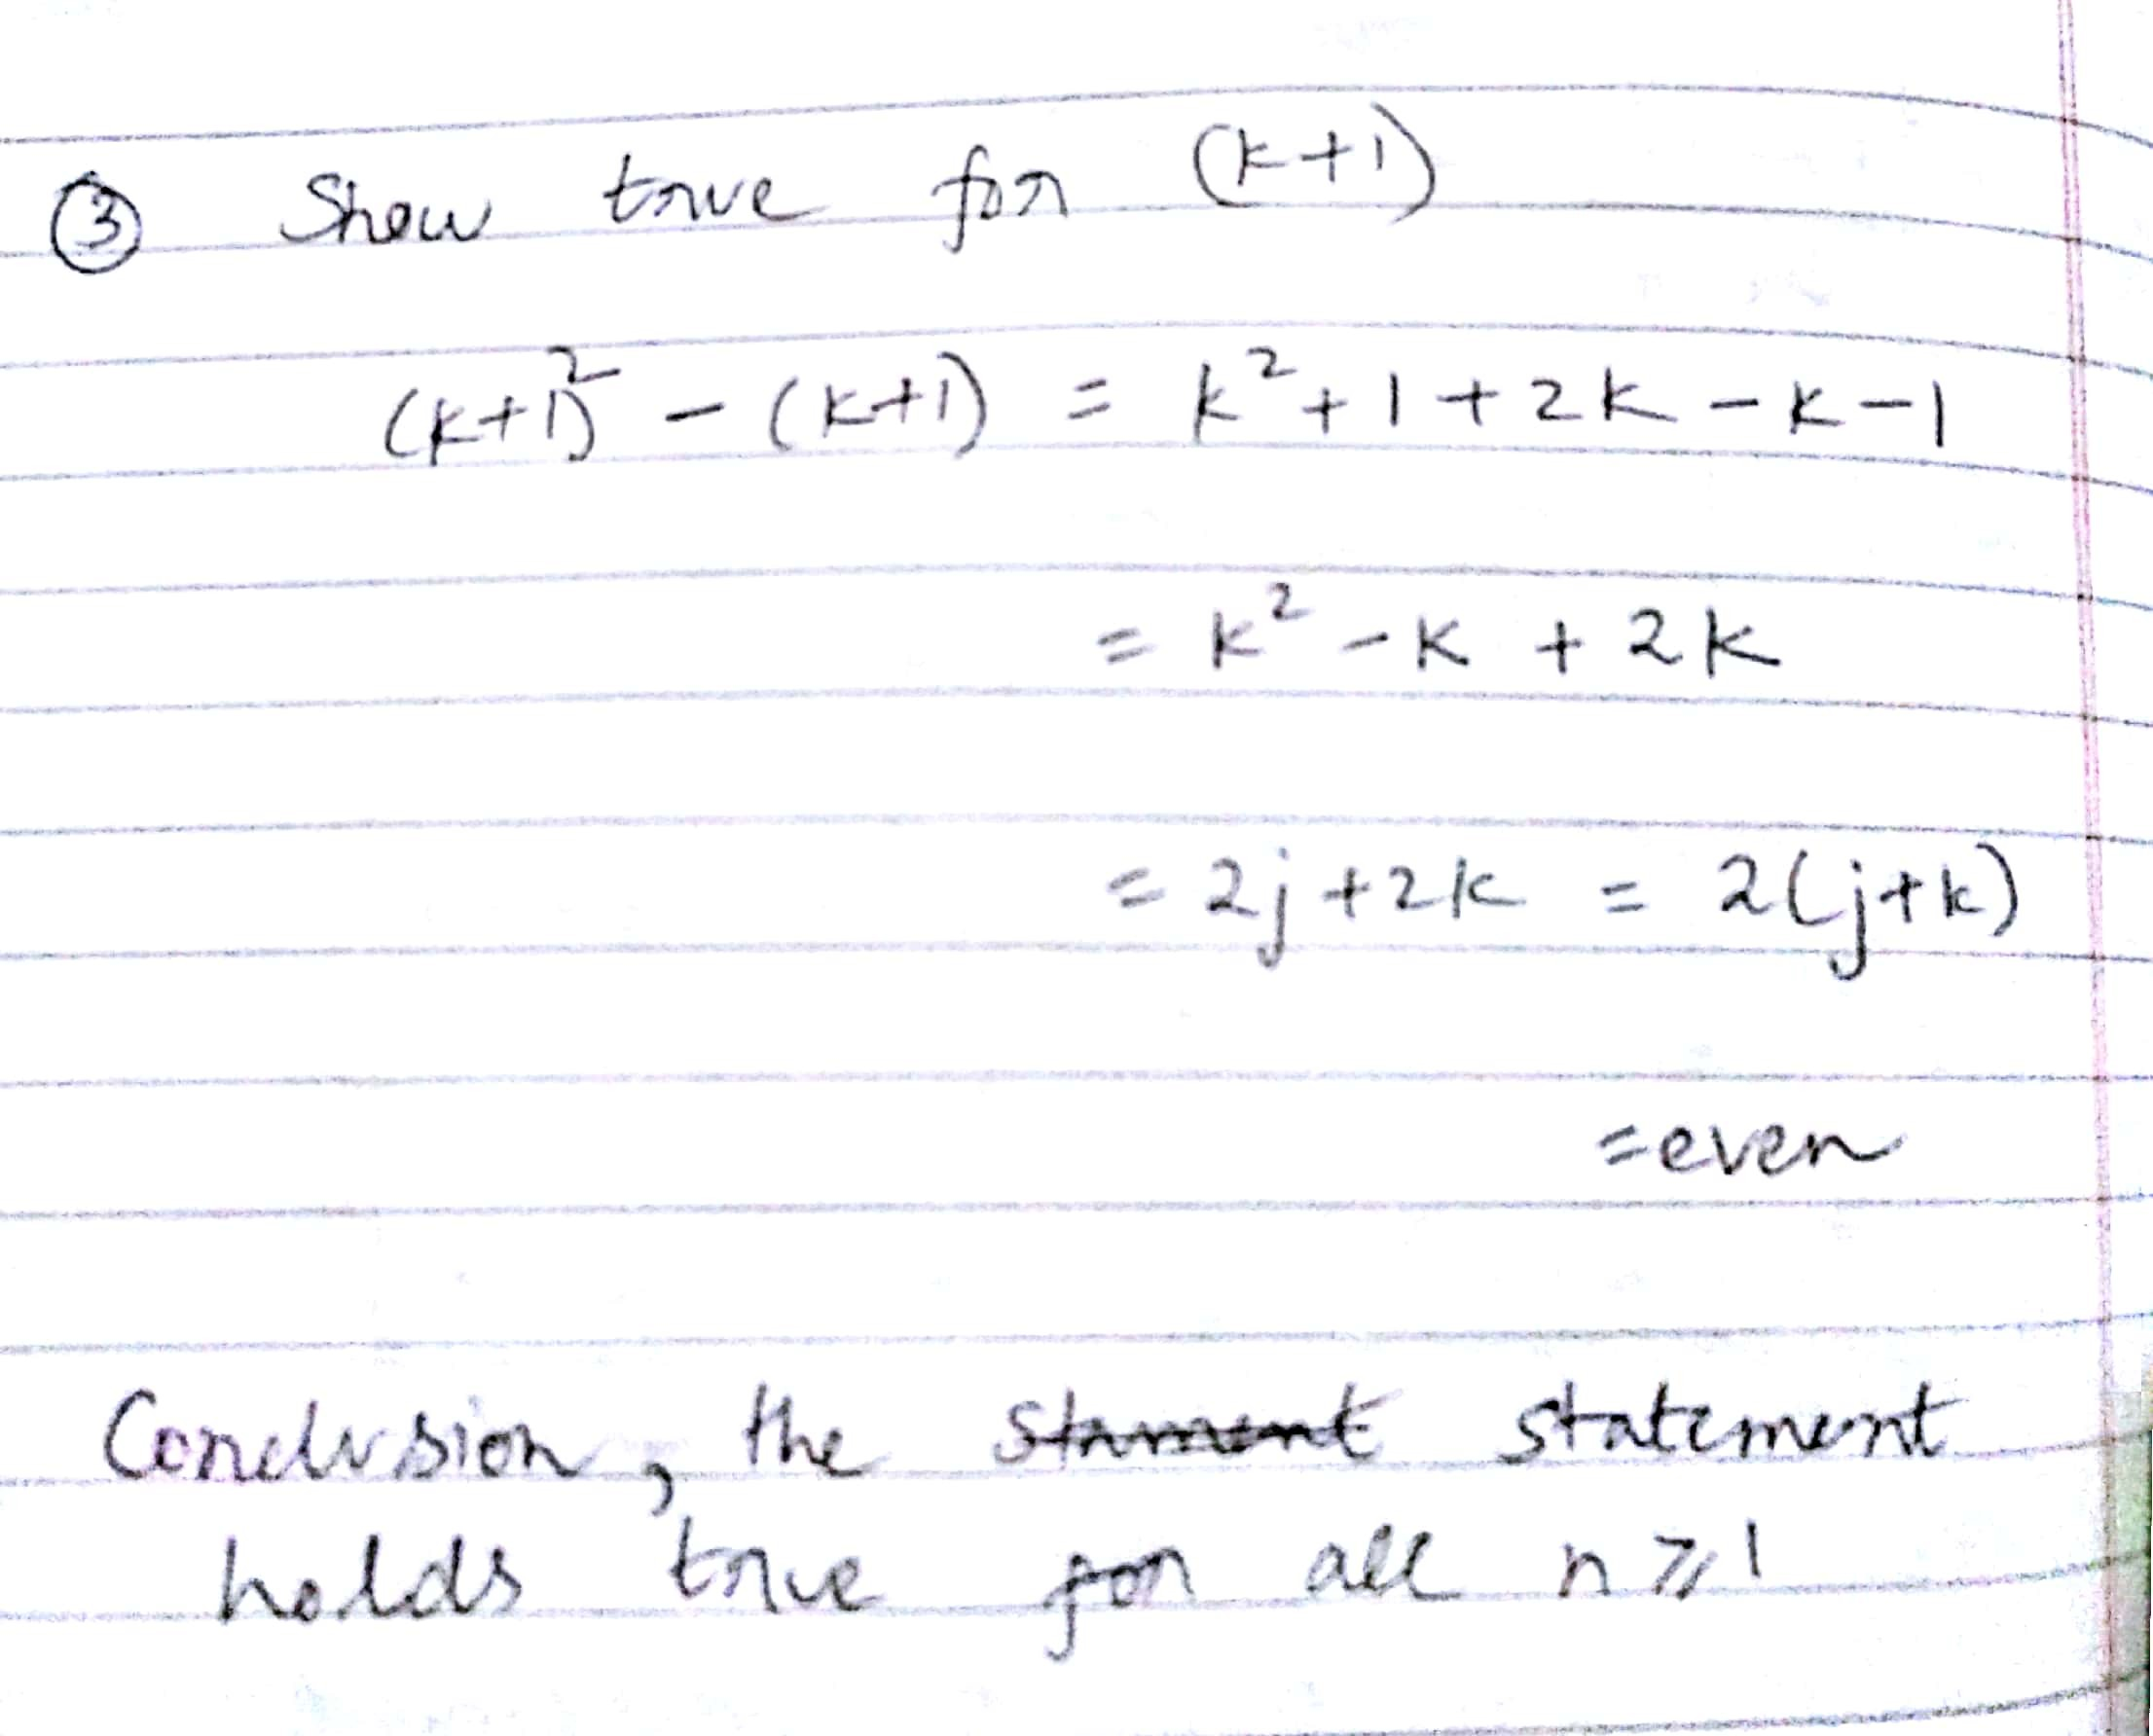 ③ Show true for (k+1)
(k+1)² - (k+1) = k² + 1 + 2k - k - 1
= k² - k + 2k
= 2j + 2k = 2(j+k)
= even
Conclusion, the stament statement
holds true for all n ⩾ 1